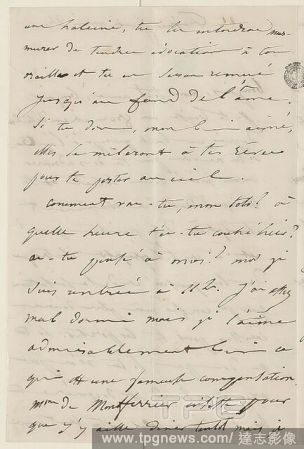 une haleine, tu les entendras mur-
murer de tendres adorations à ton
oreille et tu en seras remué
jusqu'au fond de l'âme.
Si tu dors, mon bien aimé,
elles se mêleront à tes rêves
pour te porter au ciel.
Comment vas-tu, mon toto? à
quelle heure t'es-tu couché hier?
as-tu pensé à moi? moi je
suis rentrée à 11 h. J'ai assez
mal dormi mais je t'aime
admirablement bien ce
qui est une fameuse compensation
Mme de Montferrier
pour
que j'y aille dîner tantôt mais je
www.tpgnews.com/ 達志影像